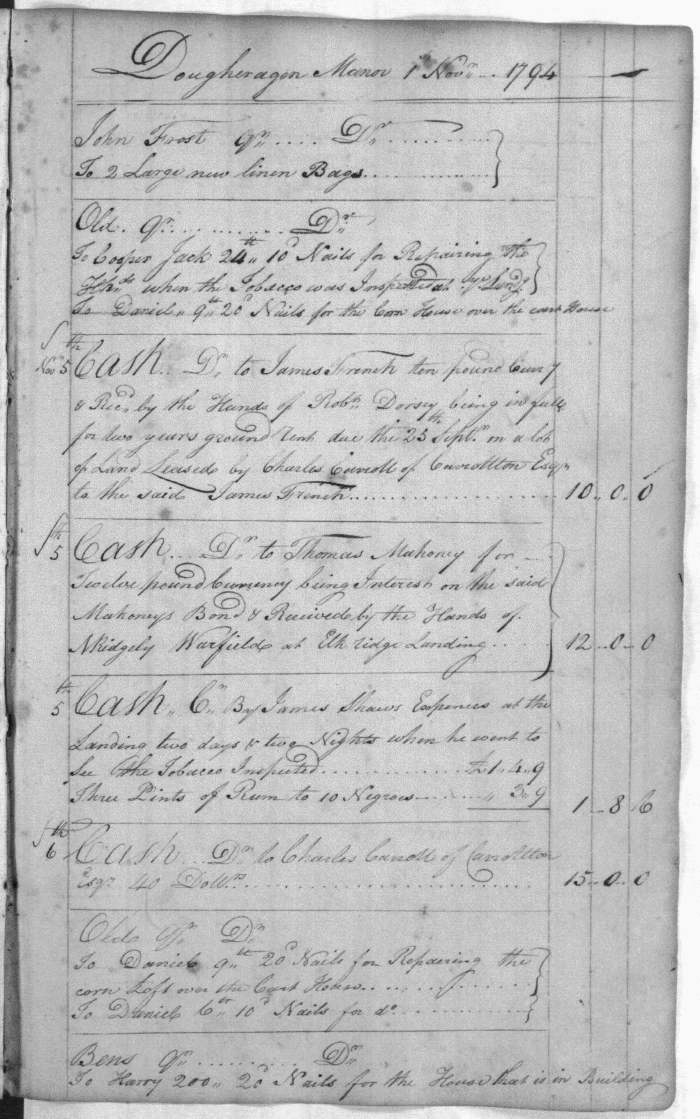 Dougheragen Manor 1st Novr... 1794
John Frost Qr..... Dr........
To 2 Large new linen Bags..........
Old. Qr............ Dr
To Cooper Jack 24th 10d Nails for Repairing the
Hhds when the Tobacco was Inspected at ye Landg
To Daniel 9th 20d Nails for the Corn House over the cart House
Novr 5th Cash.. Dr to James French ten pound Curry
& Recd by the Hands of Robt Dorsey being in full
for two years ground Rent due the 25th Sepr on a lot
of Land Leased by Charles Carroll of Carrollton Esqr
to the said James French................ 10..0..0
5th Cash... Dr to Thomas Mahoney for
Twelve pound Currency being Interest on the said
Mahoneys Bond & Received by the Hands of
NRidgely Warfield at Elk ridge Landing..... 12..0..0
5th Cash.. Cr By James Shaws Expences at the
Landing two days & two Nights when he went to
See the Tobacco Inspected............ 1..4..9
Three Pints of Rum to 10 Negroes....... 3..9 1..8..6
6th Cash... Dr to Charles Carroll of Carrollton
Esqr 40 Dollrs.................... 15..0..0
Old Qr Dr
To Daniel 9th 20d Nails for Repairing the
corn Loft over the Cart House...........
To Daniel 6th 10d Nails for do..........
Bens Qr.......... Dr
To Harry 200 20d Nails for the House that is in Building